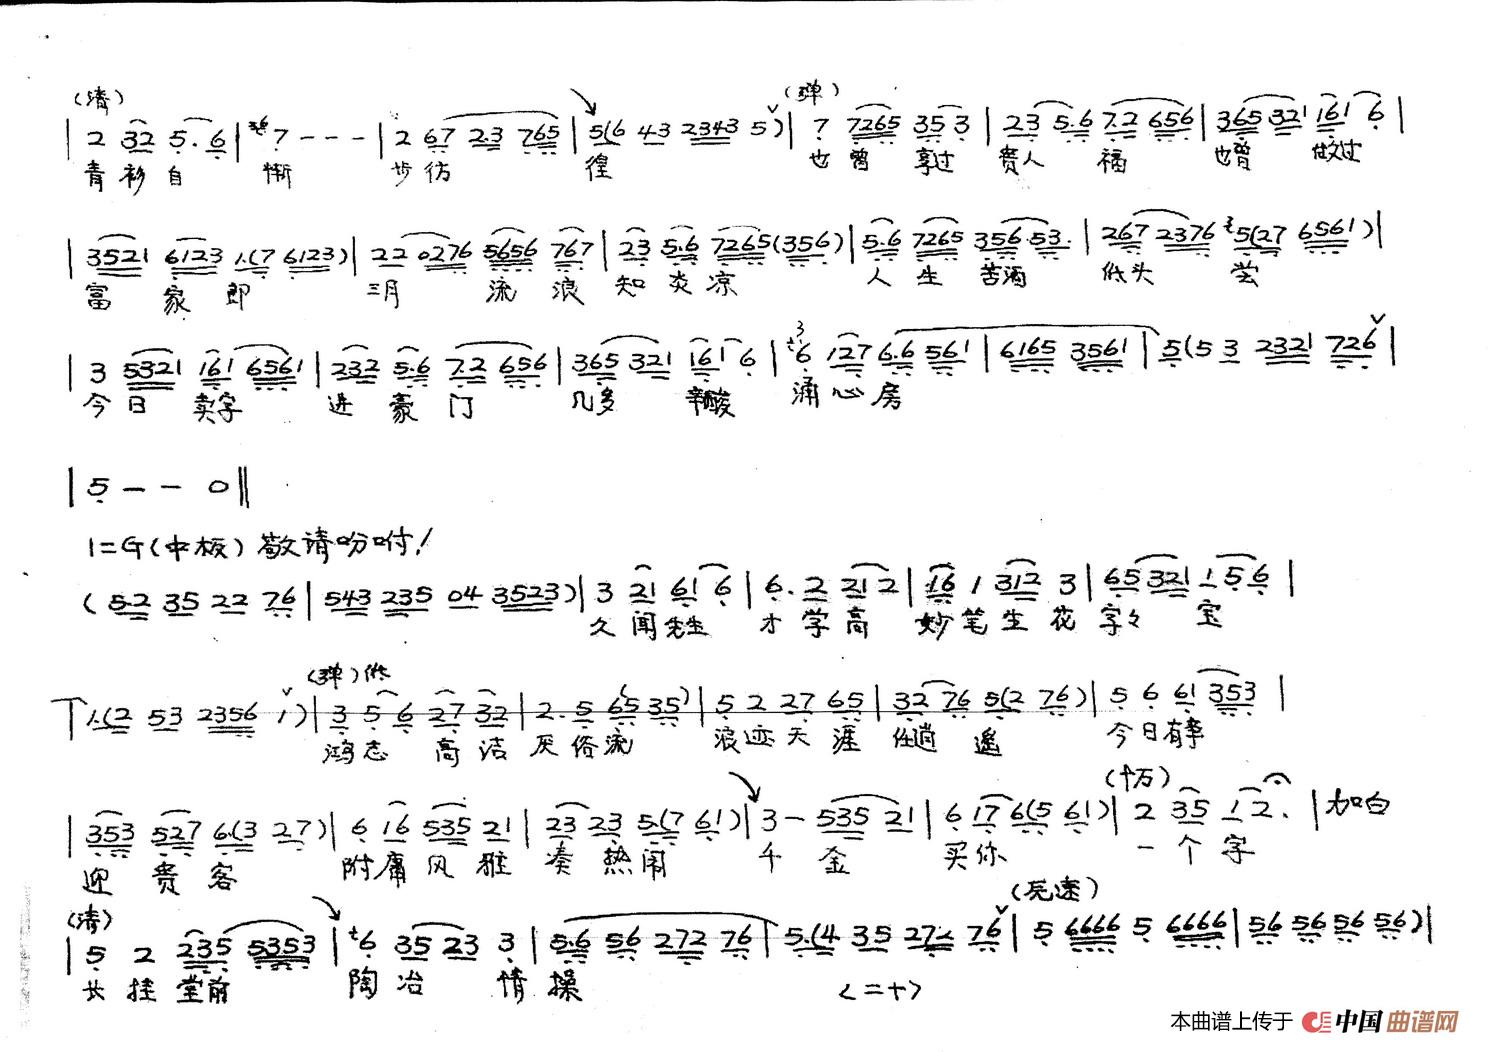 (清) (弹)
| 2 32 5. 6 | 7 - - - | 2 67 2.3 765 | 5(6 43 2343 5) | 7 7265 35 3 | 23 5.6 7.2 656 | 365 321 161 6 |
青衫自惭 步彷徨 也曾享过贵人福 也曾做过
| 3521 6123 1.(7 6123) | 22 0276 5656 767 | 23 5.6 7265(356) | 5.6 7265 356.53. | 267 2376 5(27 6561) |
富家郎 三月流浪知炎凉 人生苦酒低头尝
| 3 5321 161 6561 | 232 5.6 7.2 656 | 365 321 161 6 | 6 127 6.6 561 | 6165 3561 | 5(5 3 2321 726 |
今日卖字进豪门 几多辛酸涌心房
| 5 - - 0 ||
1=G(中板) 敬请吩咐!
(52 35 22 76 | 543 235 04 3523) | 3 21 61 6 | 6. 2 21 2 | 16 1 312 3 | 65 321 1 5 6 |
久闻先生才学高 妙笔生花字々宝
(弹)
1.(2 53 2356 1) | 3 5 6 27 32 | 2. 5 65(35) | 5 2 27 65 | 32 76 5(2 76) | 5 6 61 353 |
鸿志高洁厌俗流 浪迹天涯任逍遥 今日有幸
| 353 527 6(3 27) | 6 16 535 21 | 23 23 5(7 61) | 3 - 535 21 | 6 17 6(5 61) | 2 35 1 2. | 加白
迎贵客 附庸风雅凑热闹 千金买你一个字
(清)
| 5 2 235 5353 | 6 35 23 3 | 5.6 56 272 76 | 5.(4 35 272 76 | 5 6666 5 6666 | 56 56 56 56) |
长挂堂前陶冶情操 <二十>
本曲谱上传于 中国曲谱网